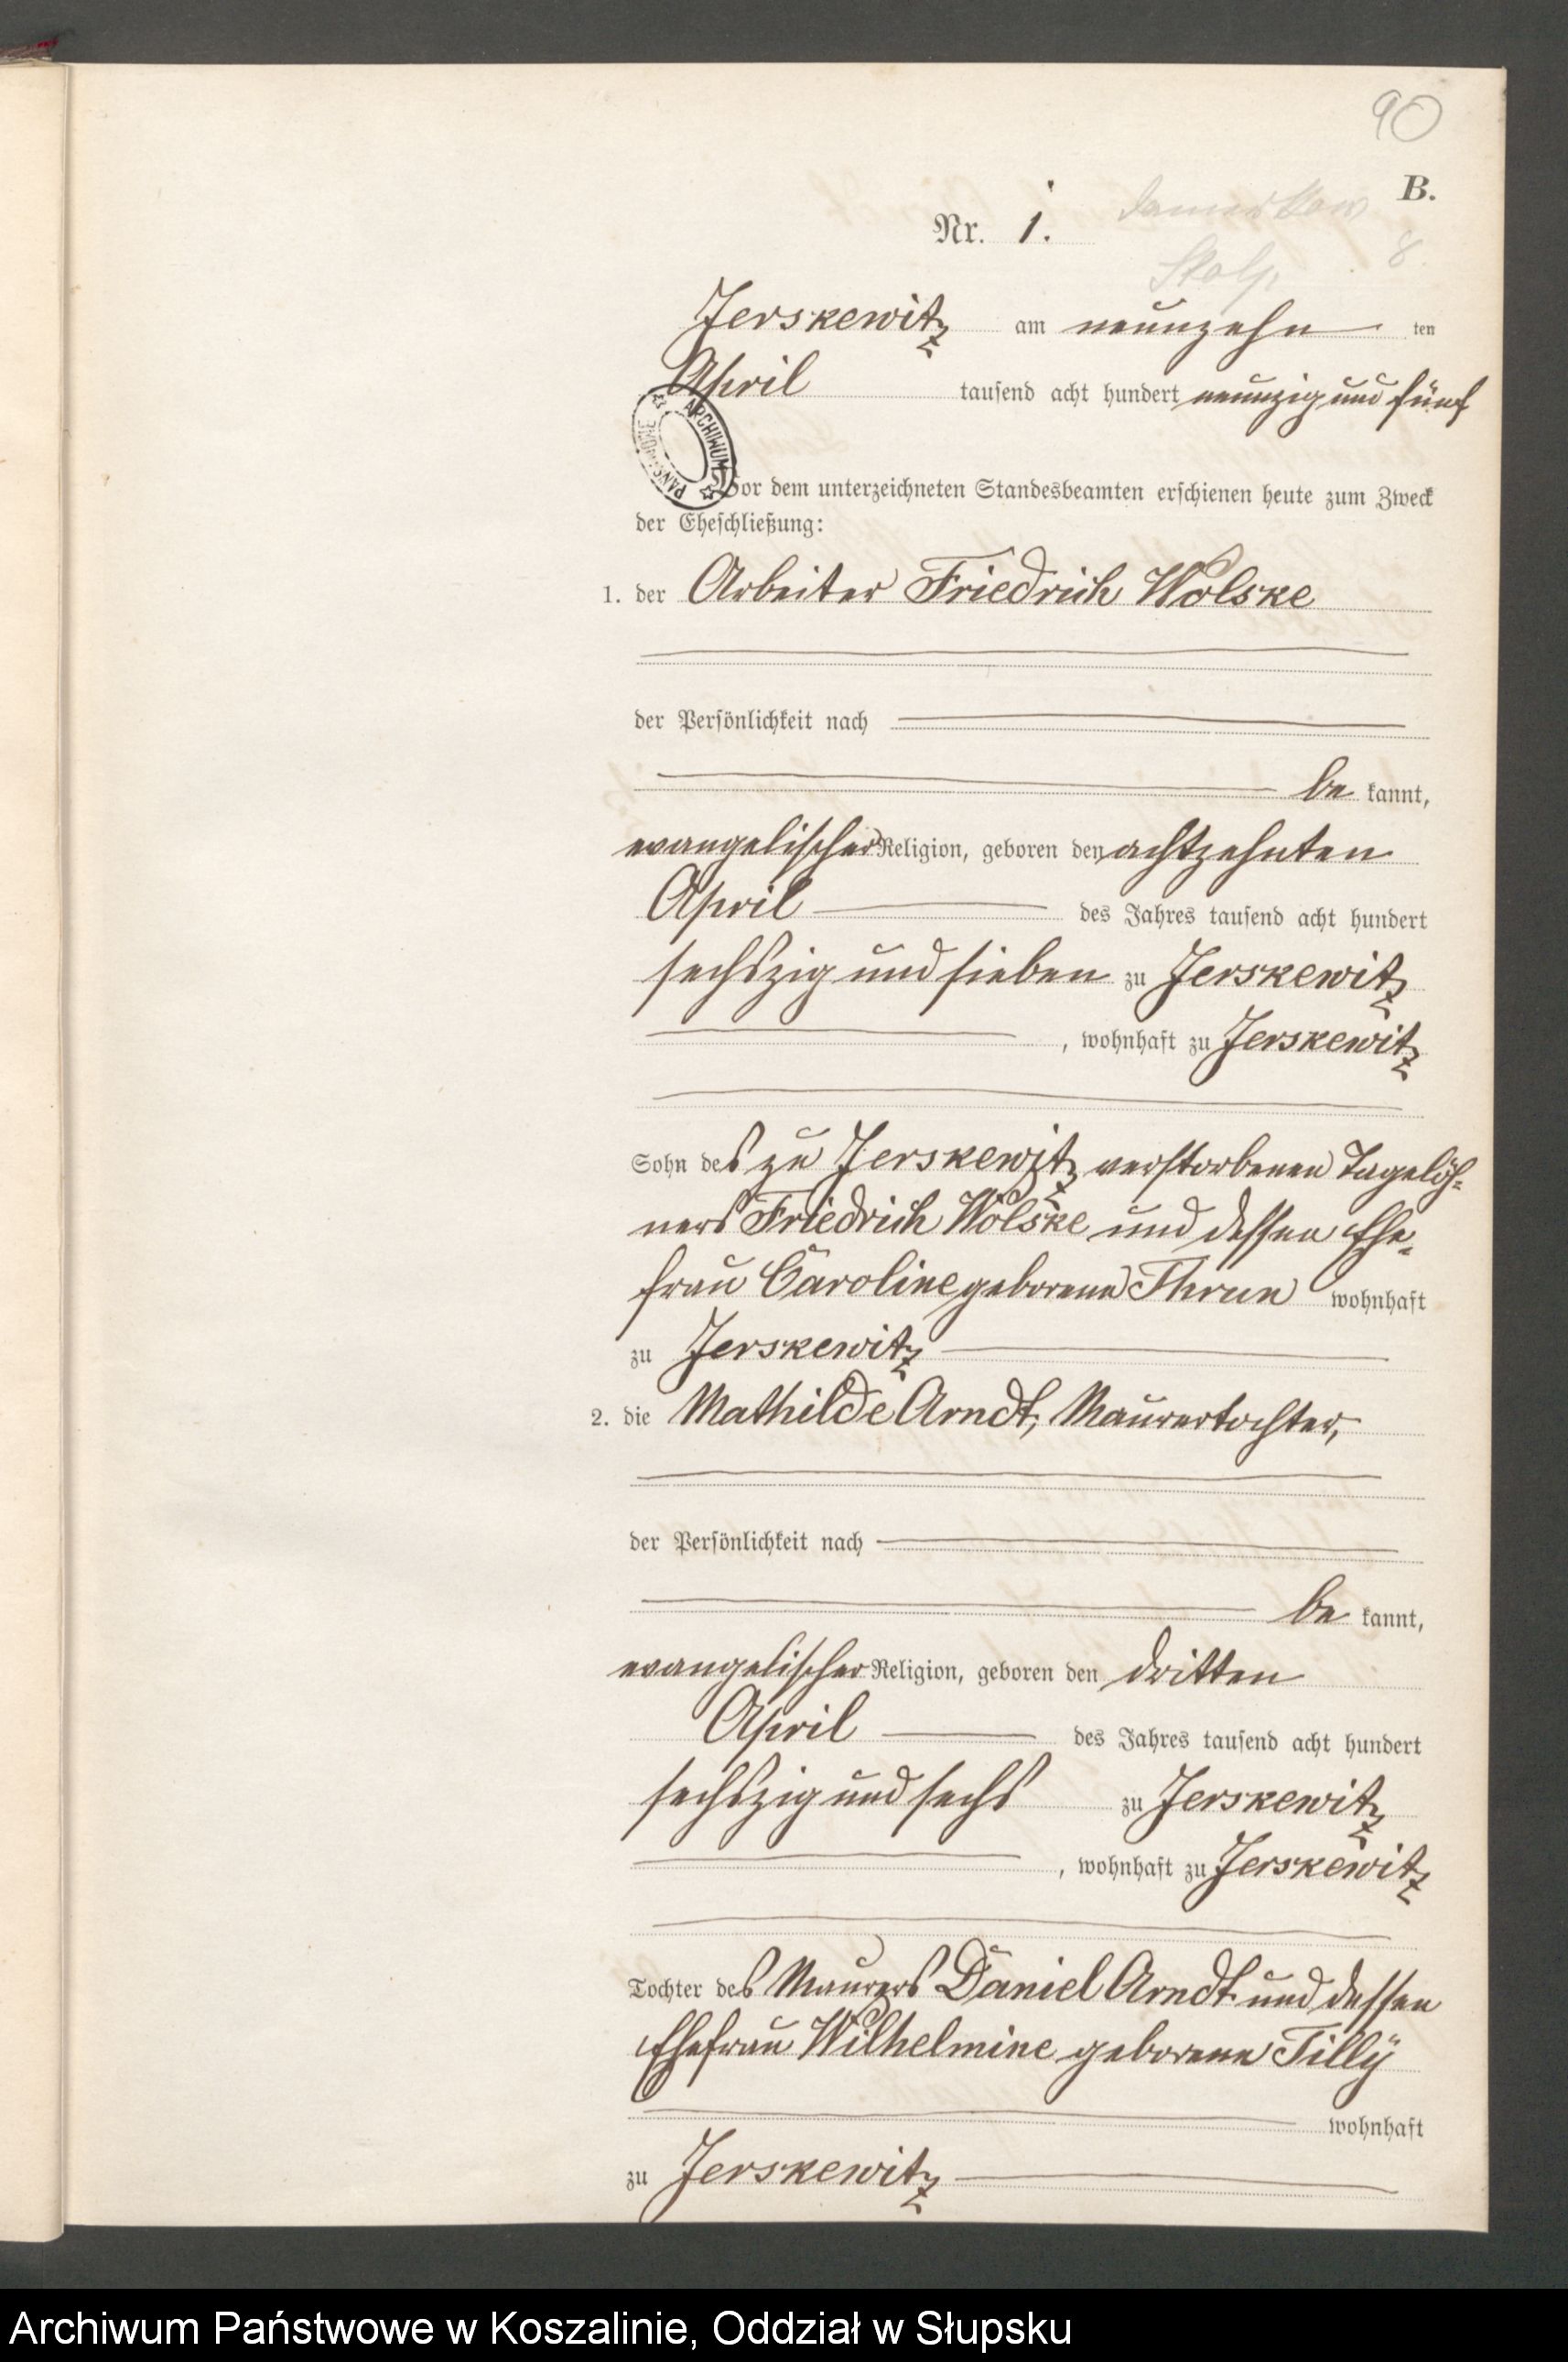 90
B.
Nr. 1.
Stolp 8.
Jerskewitz am neunzehn ten
April tausend acht hundert neunzig und fünf
PAŃSTWOWE ARCHIWUM
Vor dem unterzeichneten Standesbeamten erschienen heute zum Zweck
der Eheschließung:
1. der Arbeiter Friedrich Wolske
der Persönlichkeit nach
be kannt,
evangelischer Religion, geboren den achtzehnten
April des Jahres tausend acht hundert
sechszig und sieben zu Jerskewitz
, wohnhaft zu Jerskewitz
Sohn des zu Jerskewitz verstorbenen Tagelöh-
ners Friedrich Wolske und dessen Ehe-
frau Caroline geborene Thrun wohnhaft
zu Jerskewitz
2. die Mathilde Arndt, Maurertochter,
der Persönlichkeit nach
be kannt,
evangelischer Religion, geboren den dritten
April des Jahres tausend acht hundert
sechszig und sechs zu Jerskewitz
, wohnhaft zu Jerskewitz
Tochter des Maurers Daniel Arndt und dessen
Ehefrau Wilhelmine geborene Tilly
wohnhaft
zu Jerskewitz
Archiwum Państwowe w Koszalinie, Oddział w Słupsku